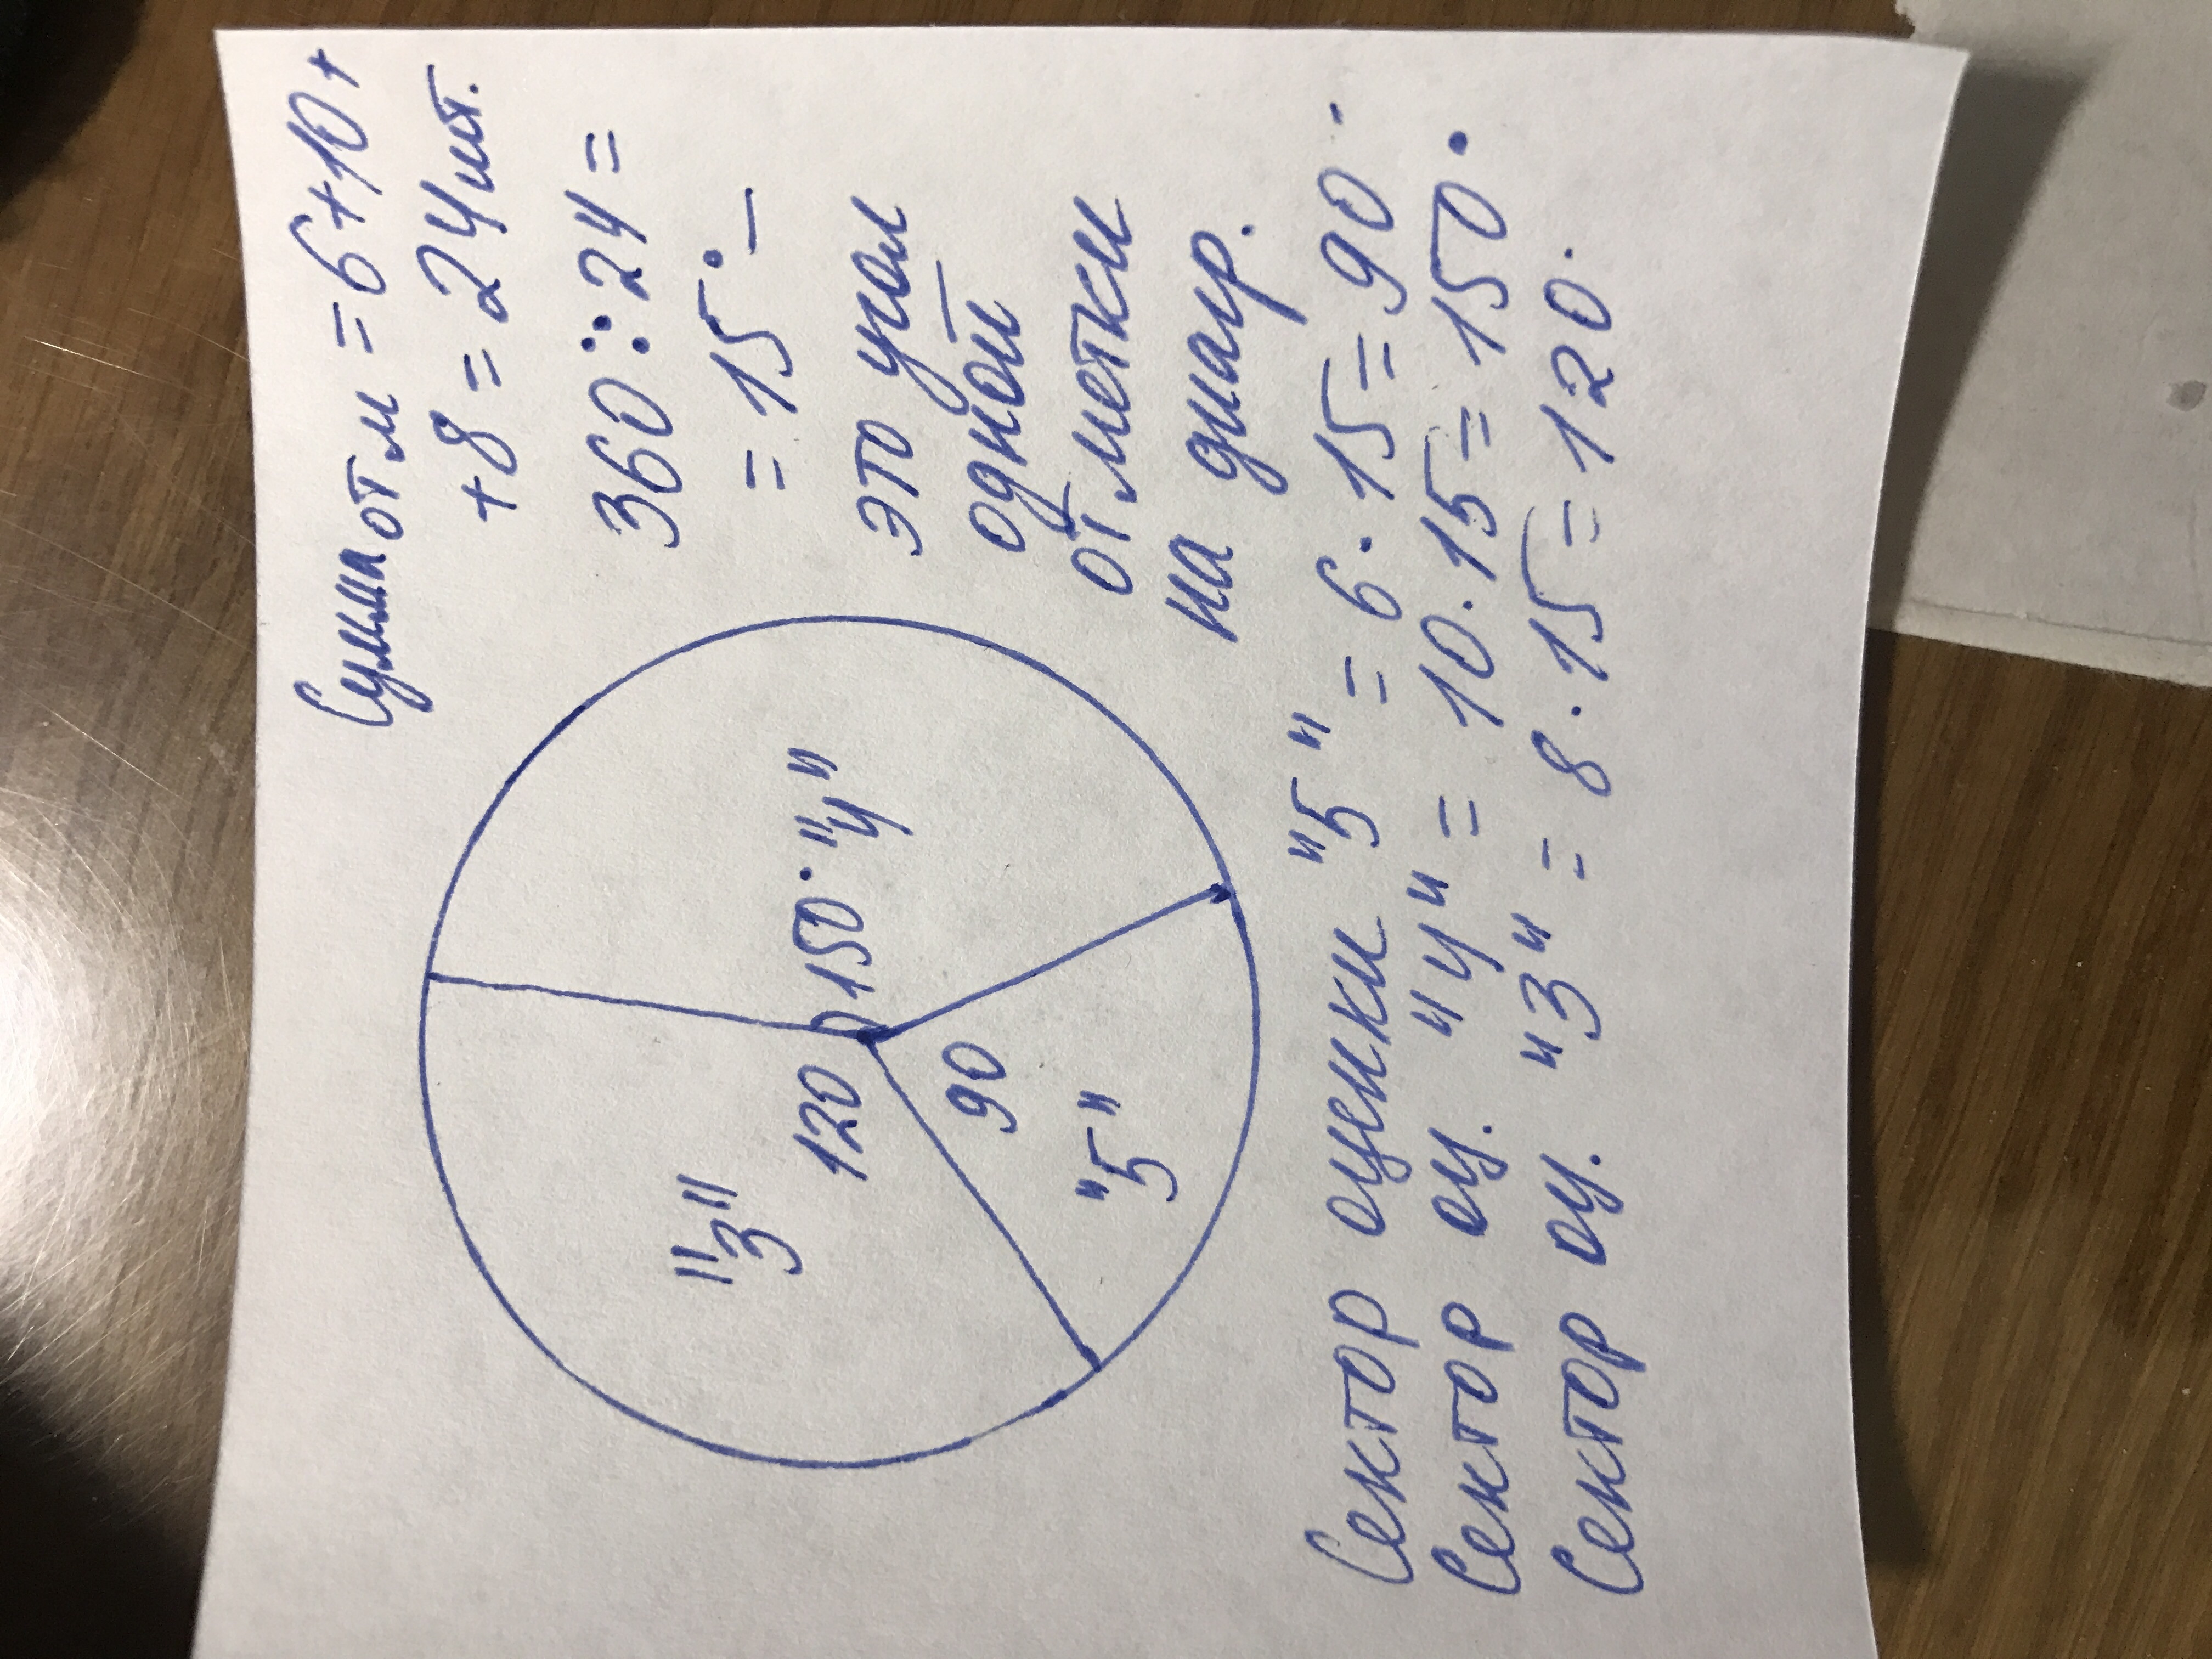 Сумма отм = 6 + 10 +
+ 8 = 24 шт.
360 : 24 =
= 15° –
это угол
одной
отметки
на диагр.
"3"
120
150° "4"
90
"5"
Сектор оценки "5" = 6 · 15 = 90°
Сектор оц. "4" = 10 · 15 = 150°
Сектор оц. "3" = 8 · 15 = 120°